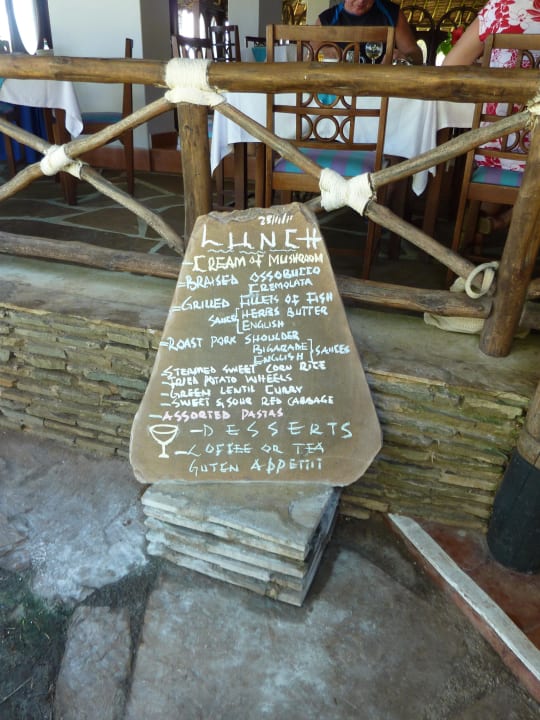 23/11/11
LUNCH
-CREAM OF MUSHROOM
-BRAISED OSSOBUCCO
CREMOLATA
-GRILLED FILLETS OF FISH
SAUCE HERBS BUTTER
ENGLISH
-ROAST PORK SHOULDER
BIGARADE
ENGLISH SAUCES
STEAMED SWEET CORN RICE
FRIED POTATO WHEELS
-GREEN LENTIL CURRY
-SWEET & SOUR RED CABBAGE
-ASSORTED PASTAS
-DESSERTS
-COFFEE OR TEA
GUTEN APPETIIT